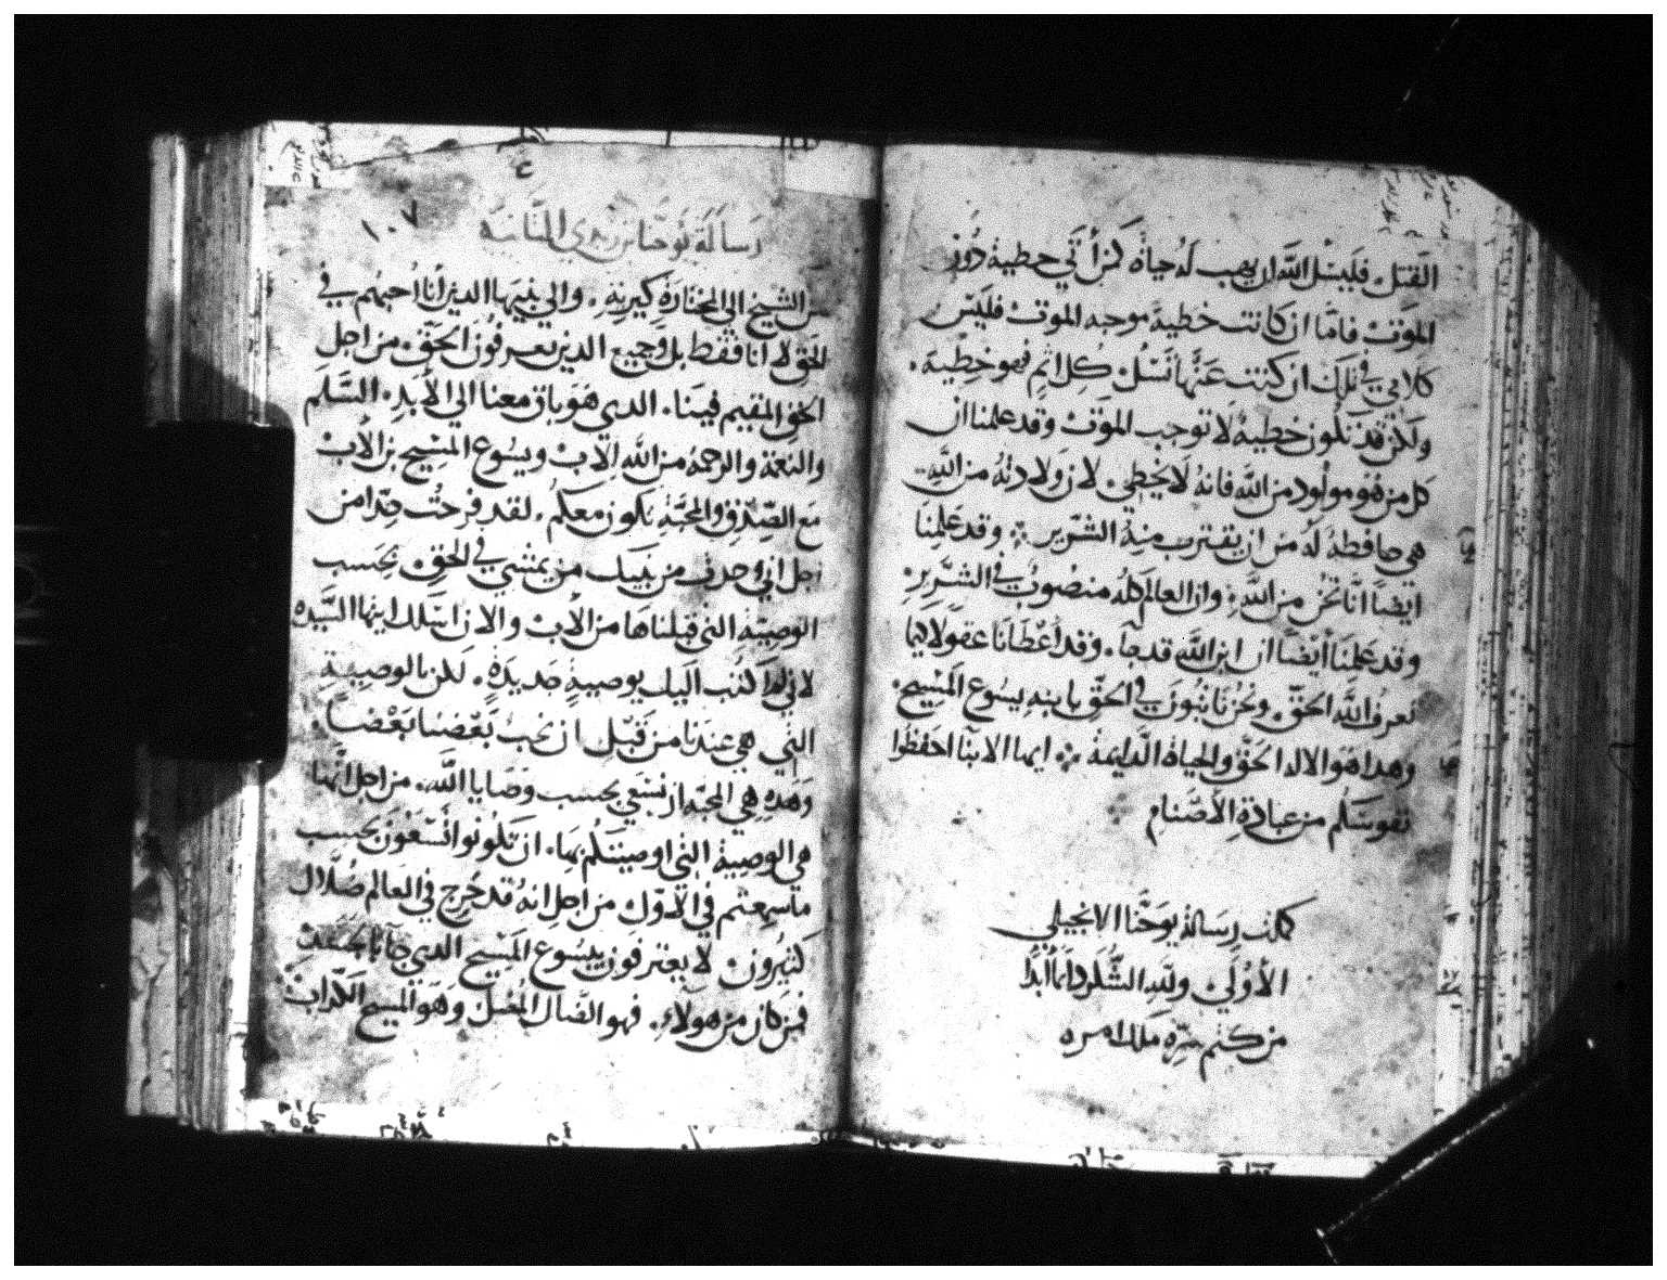 القتل. فليسل الله ان يهب له حياة كمن أتي خطية دُون
الموت فامّا ان كانت خطية موجبه الموت فليس
كلامي في تلك ان كنت عنها نسل كل اثم فهو خطية.
ولكن قد تكون خطيه لا توجب الموت وقد علمنا ان
كل من هو مولود من الله فانه لا يخطي لان ولادته من الله
هي حافظه له من ان يقترب منه الشرير وقد علمنا
ايضاً انّا نحن من الله وان العالم كله منصوب في الشرير
وقد علمنا أيضاً ان ابن الله قد جآ. وقد أعطانا عقولا كيما
نعرف الله الحق. ونحن ثابتون في الحق بابنه يسوع المسيح.
وهدا هو الاله الحق والحياة الدايمة ايها الابنا احفظوا
نفوسكم من عبادة الأصنام
كملت رسالة يوحنا الانجيلي
الأولي ولله الشكر دايماً ابداً
من كتم سره ملك امره
١٠٧
رسالة يوحنا بن زبدي الثانية
من الشيخ الي المختارة كيرية. والي بنيها الدين أنا أحبهم في
الحق لا انا فقط بل وجميع الدين يعرفون الحق من اجل
الحق المقيم فينا. الدي هو باق معنا الي الأبد. السلم
والنعمة والرحمة من الله الاب ويسوع المسيح بن الأب
مع الصدق والمحبة يكون معكم. لقد فرحت جدّا من
اجل اني وجدت من بنيك من يمشي في الحق. بحسب
الوصيّة التي قبلناها من الأب والان اسلك ايتها السيده
لاني لم اكتب اليك بوصية جديدة. لكن بالوصية
التي هي عندنا من قبل ان نحب بعضنا بعضاً.
وهده هي المحبه ان نسعي بحسب وصايا الله. من اجل انها
هي الوصية التي اوصيتكم بها. ان تكونوا تسعون بحسب
ما سمعتم في الأول من اجل انه قد خرج في العالم ضلّال
كثيرون لا يعترفون بيسوع المسيح الدي جآ بالجسد
فمن كان من هولاء. فهو الضال المضل وهو المسيح الكداب